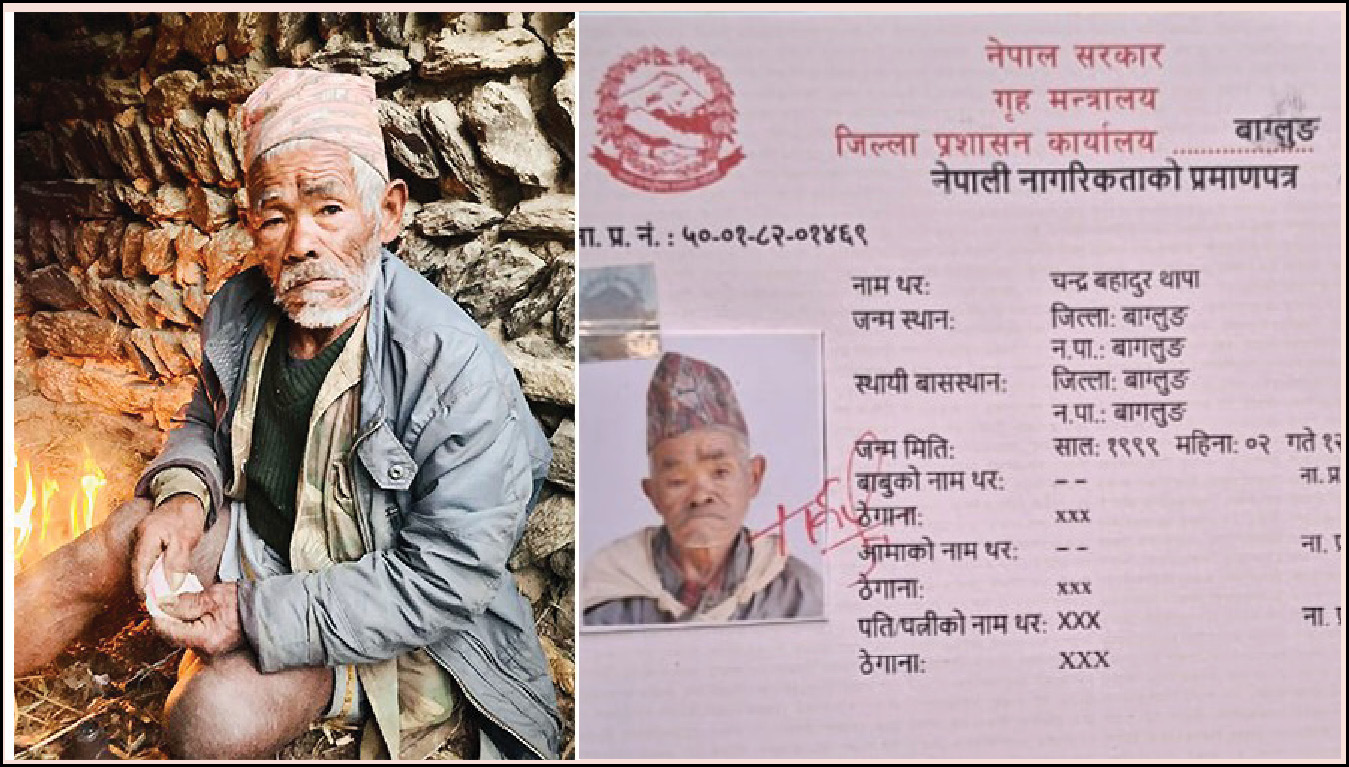 नेपाल सरकार
गृह मन्त्रालय
जिल्ला प्रशासन कार्यालय .................... बाग्लुङ
नेपाली नागरिकताको प्रमाणपत्र
ना. प्र. नं. : ५०-०१-८२-०१४६९
नाम थर: चन्द्र बहादुर थापा
जन्म स्थान: जिल्ला: बाग्लुङ
न.पा.: बागलुङ
स्थायी बासस्थान: जिल्ला: बाग्लुङ
न.पा.: बागलुङ
जन्म मिति: साल: १९९९ महिना: ०२ गते १२
बाबुको नाम थर: -- ना. प्र
ठेगाना: xxx
आमाको नाम थर: -- ना. प्र
ठेगाना: xxx
पति/पत्नीको नाम थर: XXX ना. प्र
ठेगाना: XXX